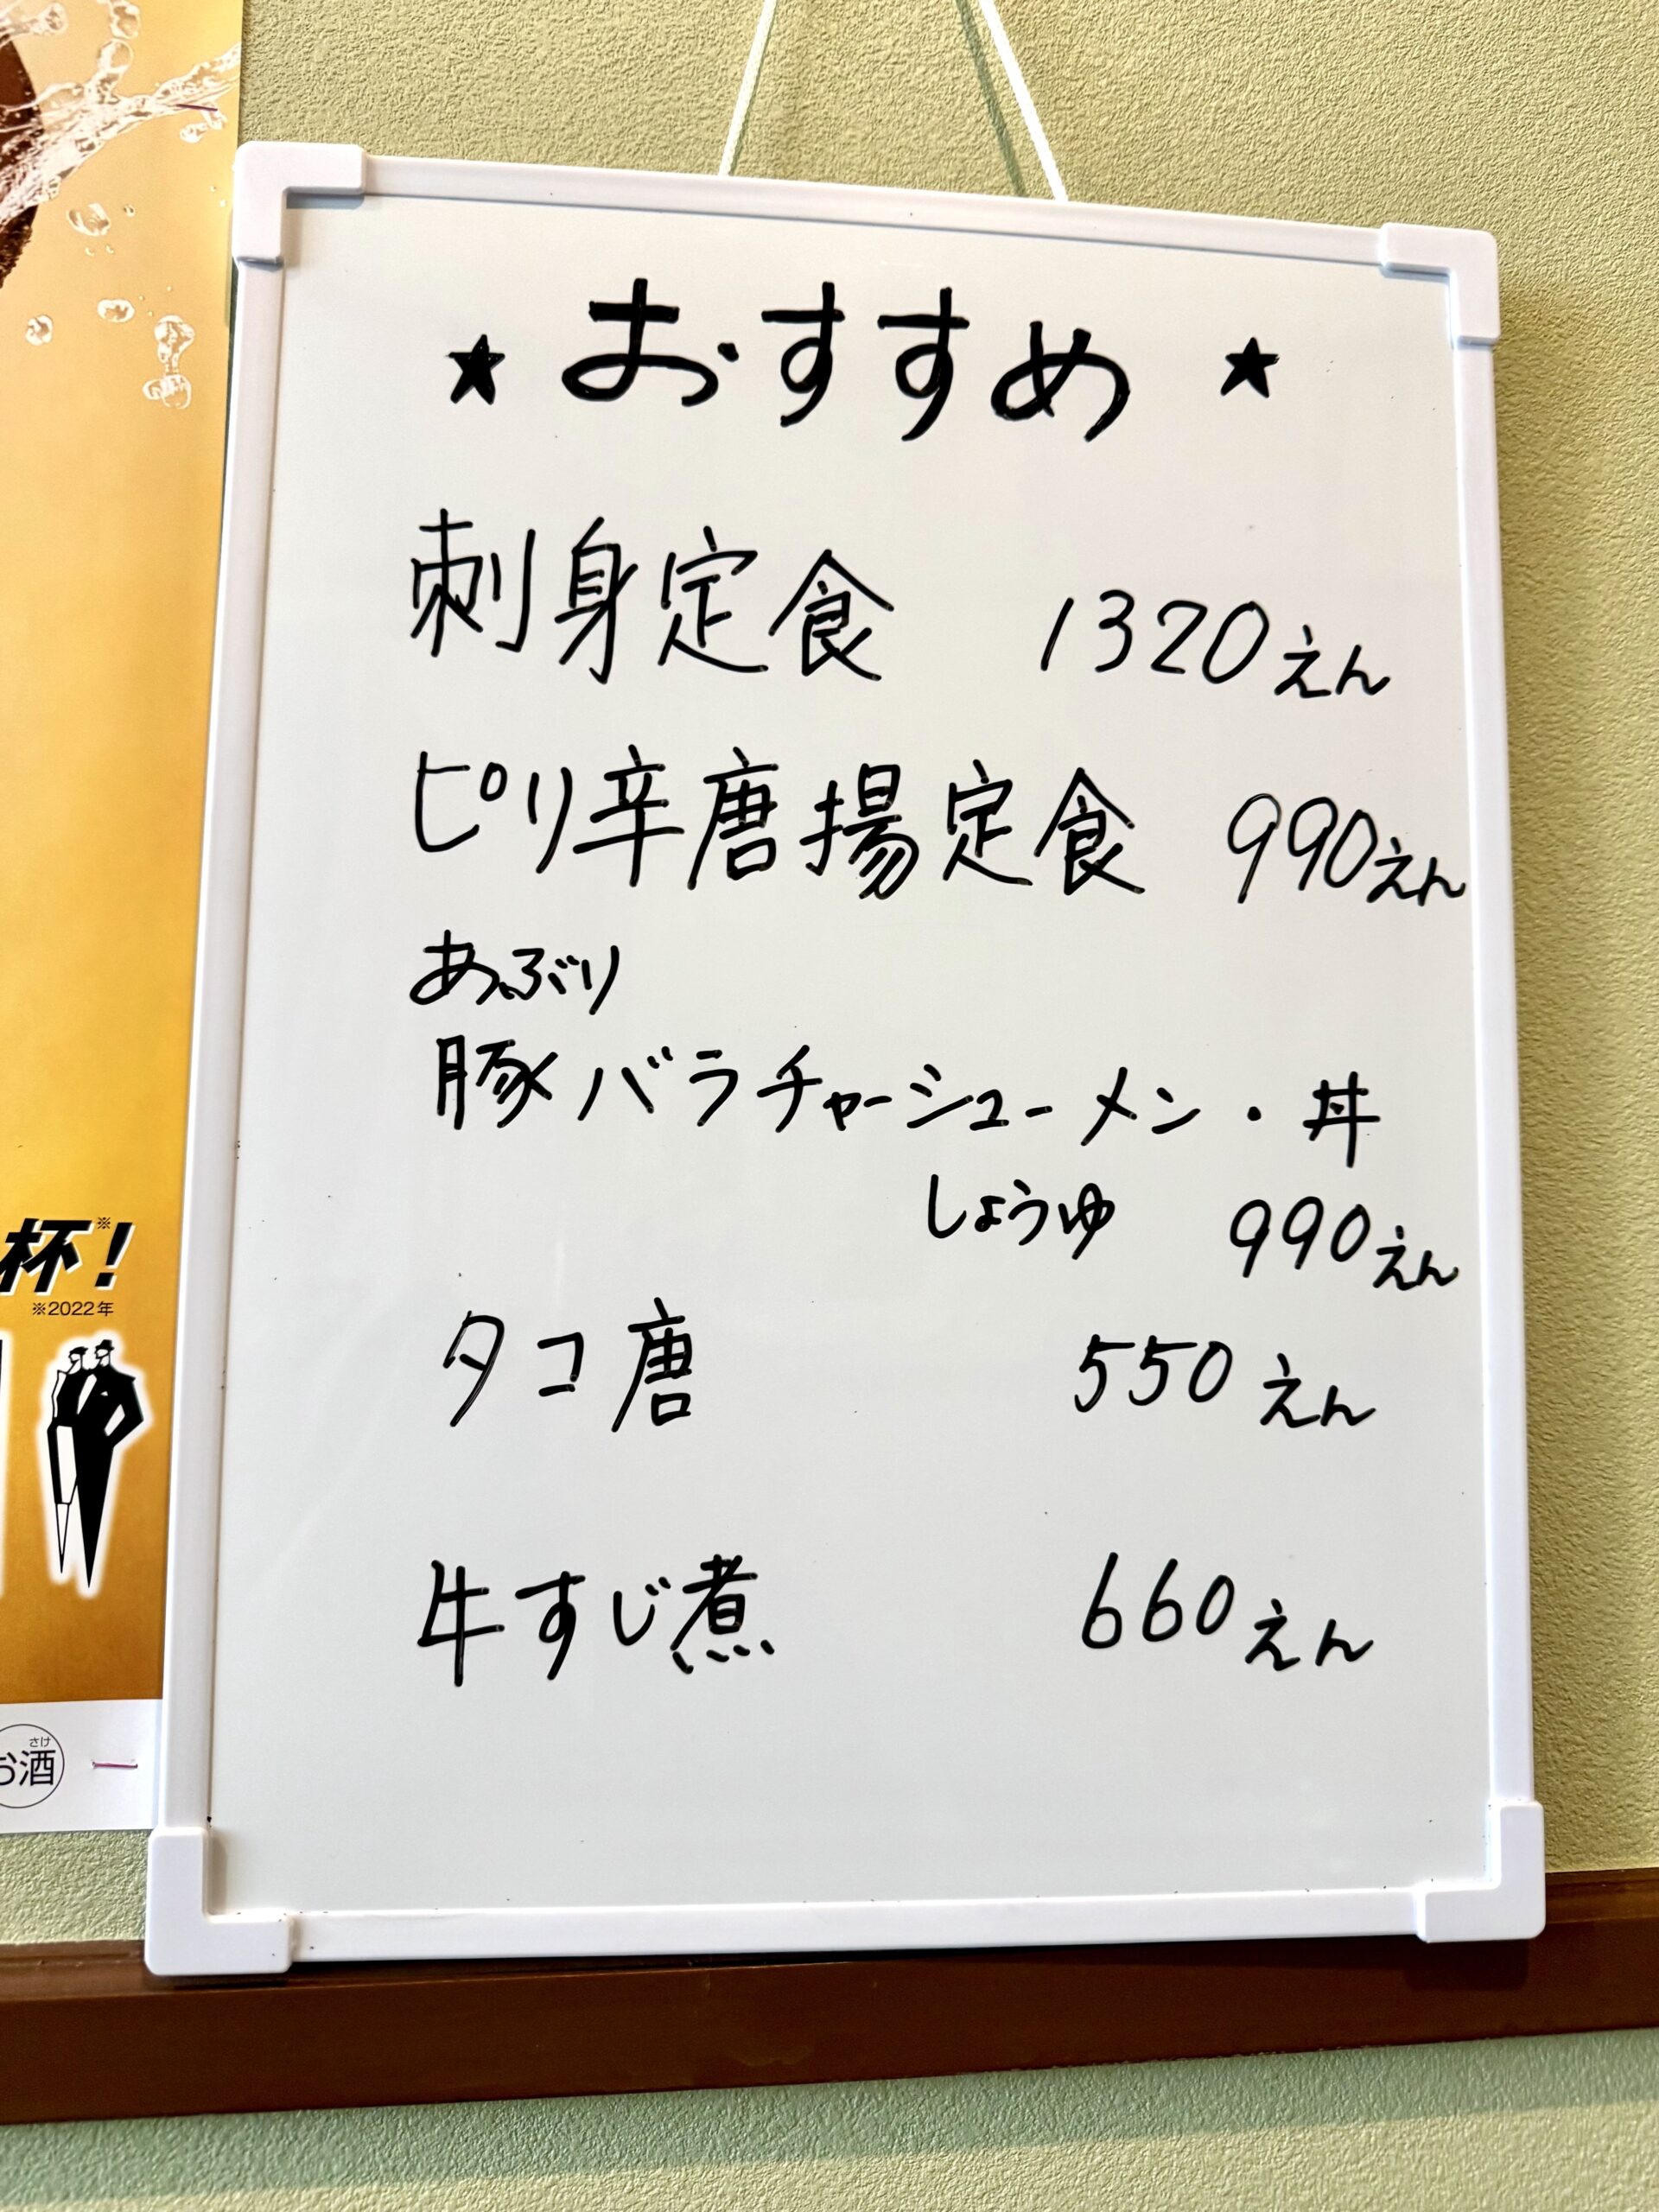 ★おすすめ★
刺身定食 1320えん
ピリ辛唐揚定食 990えん
あぶり
豚バラチャーシューメン・丼
しょうゆ 990えん
タコ唐 550えん
牛すじ煮 660えん
杯!※
※2022年
さけ
お酒